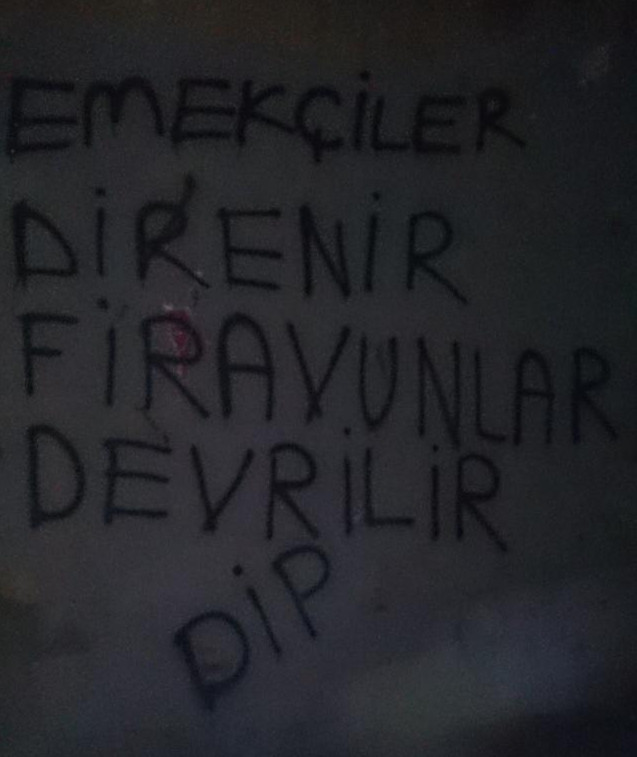 EMEKÇİLER
DİRENİR
FİRAVUNLAR
DEVRİLİR
DİP